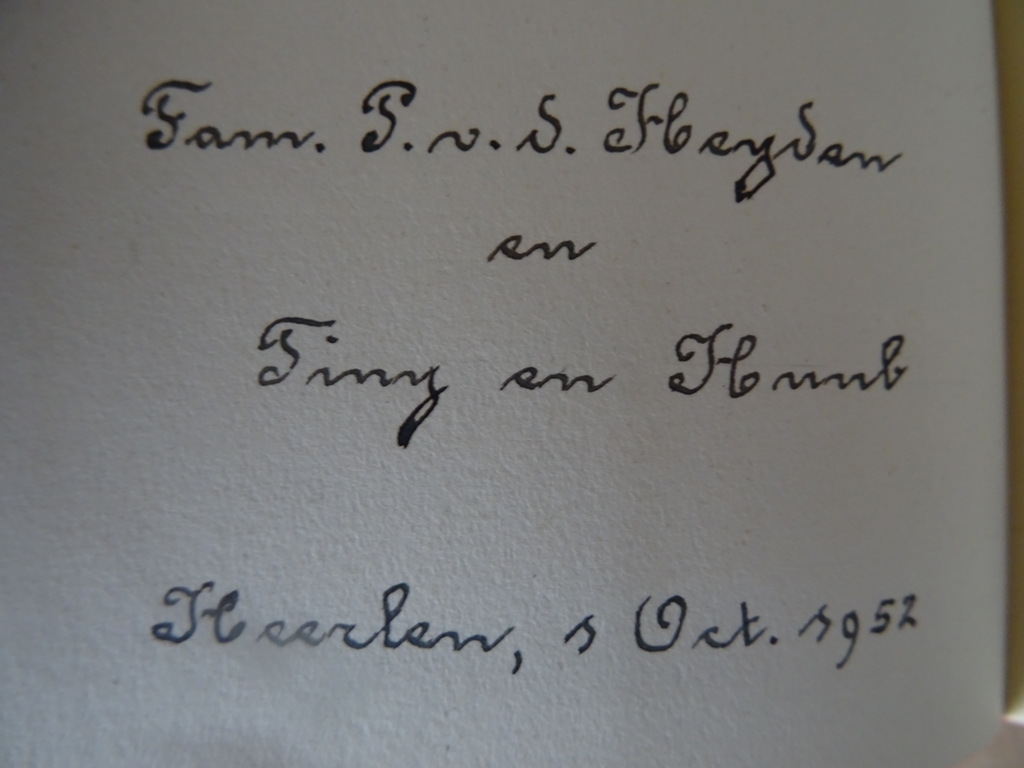 Fam. P. v. d. Heyden
en
Tiny en Huub
Heerlen, 1 Oct. 1952